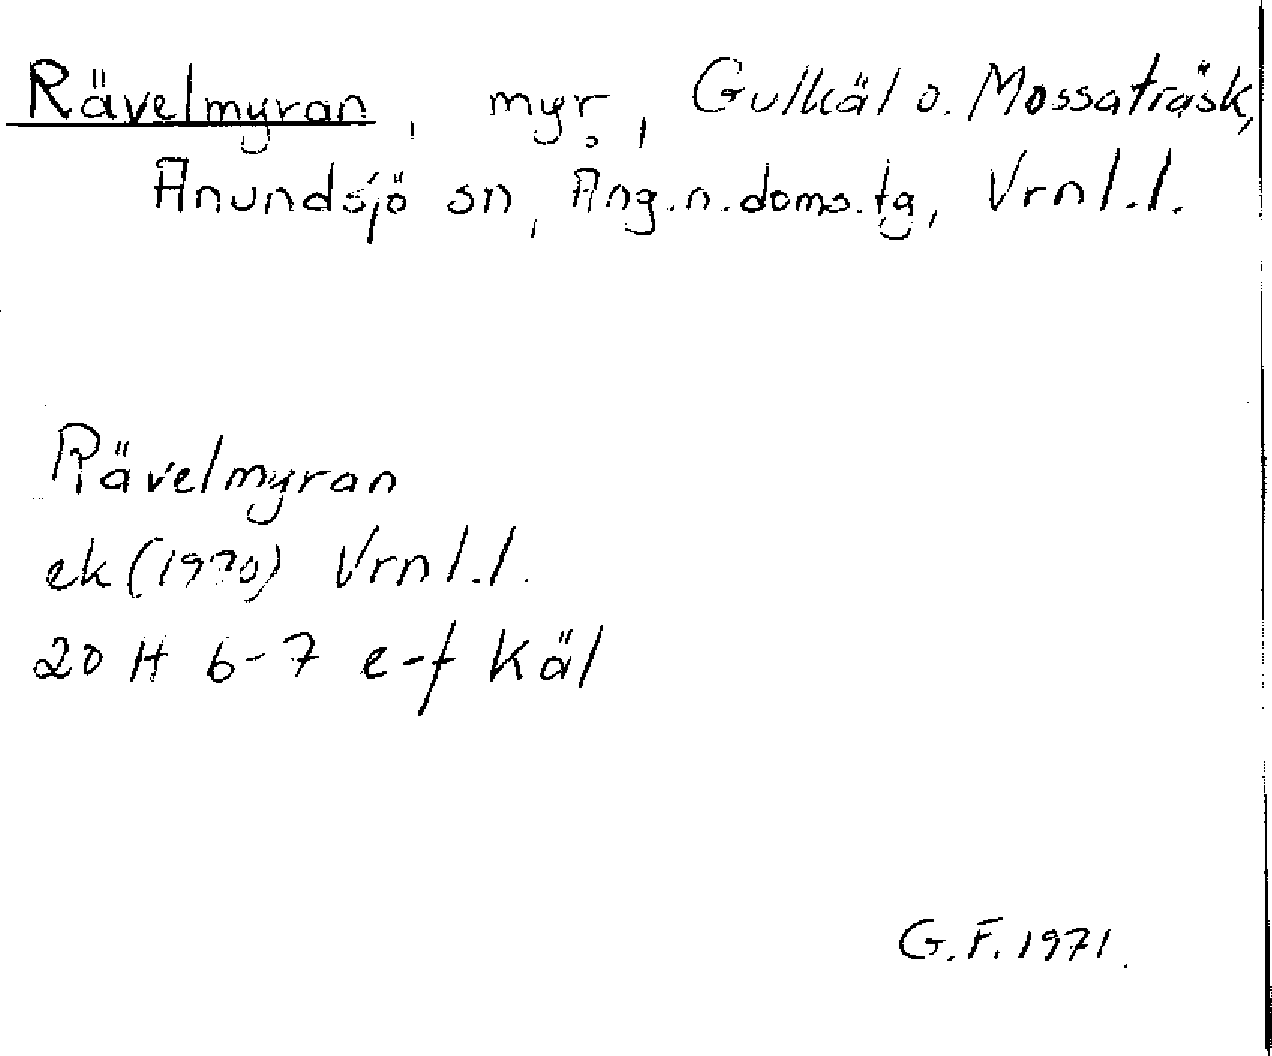 Rävelmyran, myr, Gulkäl o. Mossaträsk,
Anundsjö sn, Ång.n.doms.tg, Vrnl.l.
Rävelmyran
ek (1970) Vrnl.l.
20 H 6-7 e-f Käl
G.F. 1971.